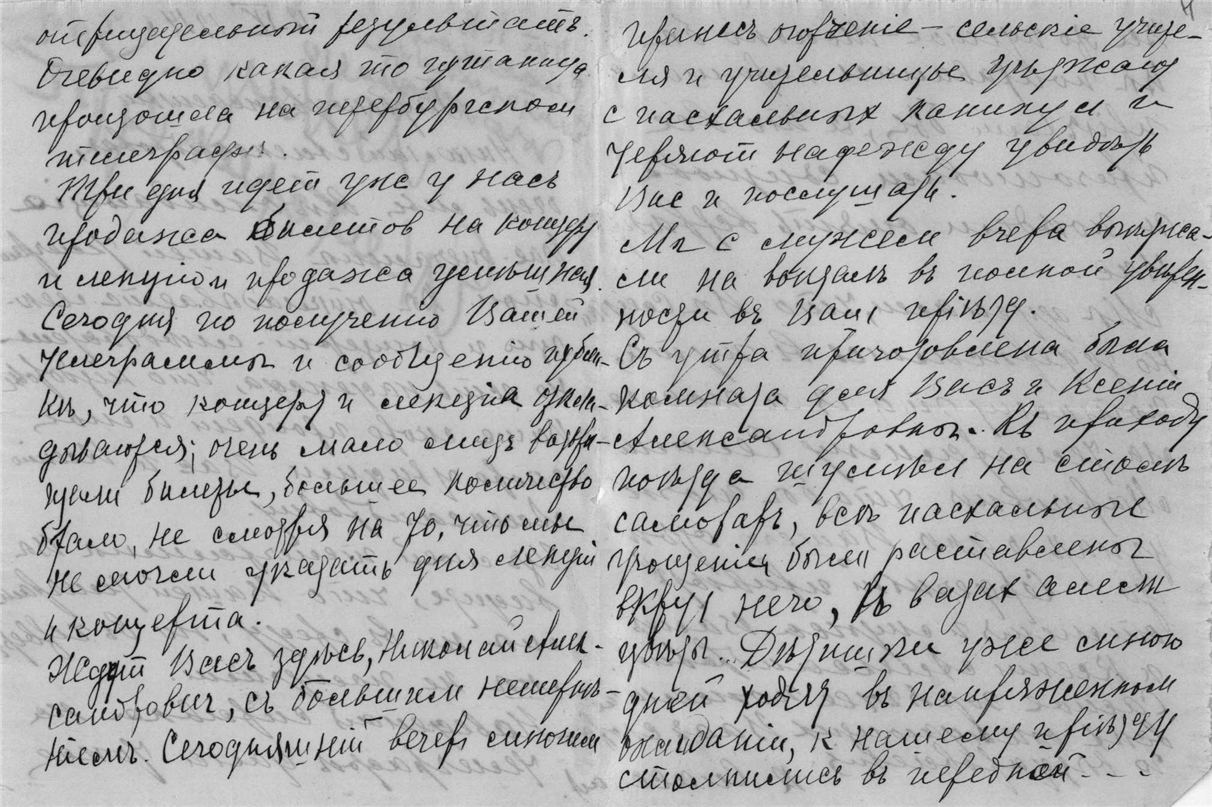 отрицательный результатъ.
Очевидно какая то путаница
произошла на петербургском
телеграфе.
Три дня идет уже у насъ
продажа билетов на концерт
и лекцію и продажа успешная.
Сегодня по полученію Вашей
телеграммы и сообщенію публи-
кѣ, что концертъ и лекція откла-
дываются, очень мало лицъ возвра-
щали билеты, большее количество
брало, не смотря на то, что мы
не могли указать дня лекціи
и концерта.
Ждут Васъ здѣсь, Николай Алек-
сандрович, съ большим нетерпѣ-
ніемъ. Сегодняшній вечер многим
принесъ огорченіе – сельскіе учите-
ля и учительницы уѣзжают
с пасхальных каникул и
теряют надежду увидѣть
Вас и послушать.
Мы с мужем вчера выѣзжа-
ли на вокзалъ въ полной увѣрен-
ности въ Ваш пріѣзд.
Съ утра приготовлена была
комната для Васъ и Ксеніи
Александровны. Къ приходу
поѣзда шумѣл на столѣ
самовар, всѣ пасхальные
угощенія были раставлены
вкруг него, в вазах алели
цвѣты... Дѣтишки уже много
дней ходят въ напряженном
ожиданіи, к нашему пріѣзду
столпились въ передней - - -